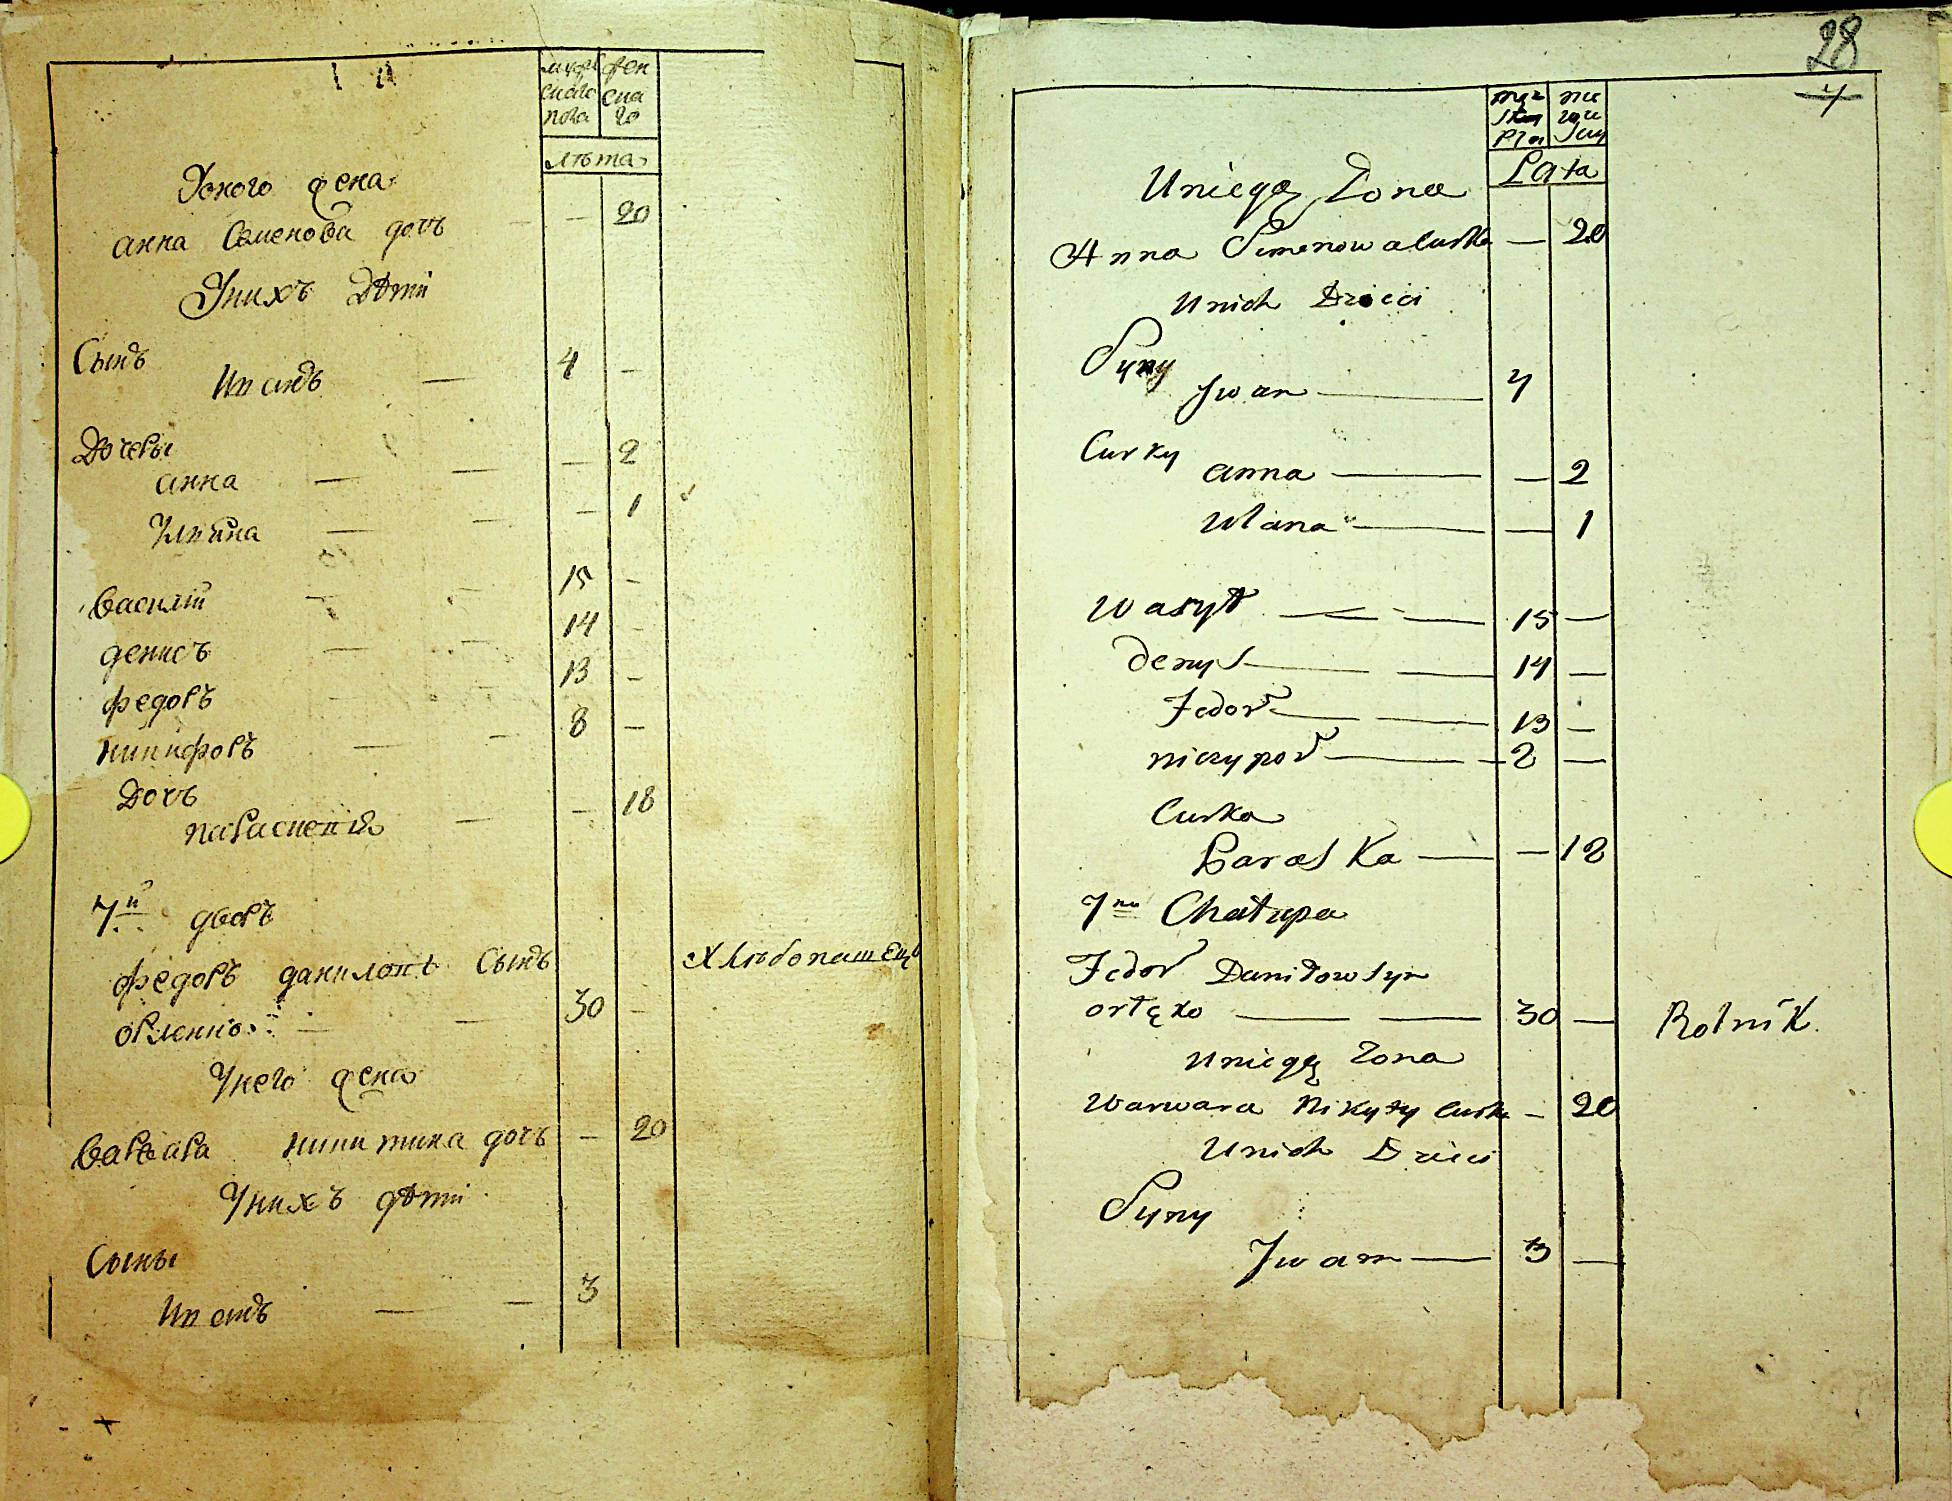 мужескаго пола
женскаго
лѣта
Уоного жена
анна Семенова дочъ — 20
Унихъ Дѣти
Сынъ
Иванъ — 4 —
Дочеры
анна — — 2
Улиана — — 1
Василий — 15 —
денисъ — 14 —
федоръ — 13 —
никифоръ — 8 —
Дочъ
параскевія — — 18
7й дворъ
федоръ даниловъ Сынъ Хлѣбопашецъ
орленко — 30 —
Унего жена
Варвара никитина дочъ — 20
Унихъ дѣти
Сыны
Иванъ — — 3
28
4
Lata
Uniegą Żona
Anna Semenowa Curka — 20
Unich Dzieci
Syny
Jwan — 4
Curky
anna — — 2
Ulana — — 1
Wasyl — — 15 —
Denys — — 14 —
Fedor — — 13 —
niczypor — 8 —
Curka
Paraska — — 18
7ma Chałupa
Fedor Daniłow Syn
orłęko — — 30 — Rolnik
Uniegą Zona
Warwara Nikyty Curka — 20
Unich Dzieci
Syny
Jwan — 3 —